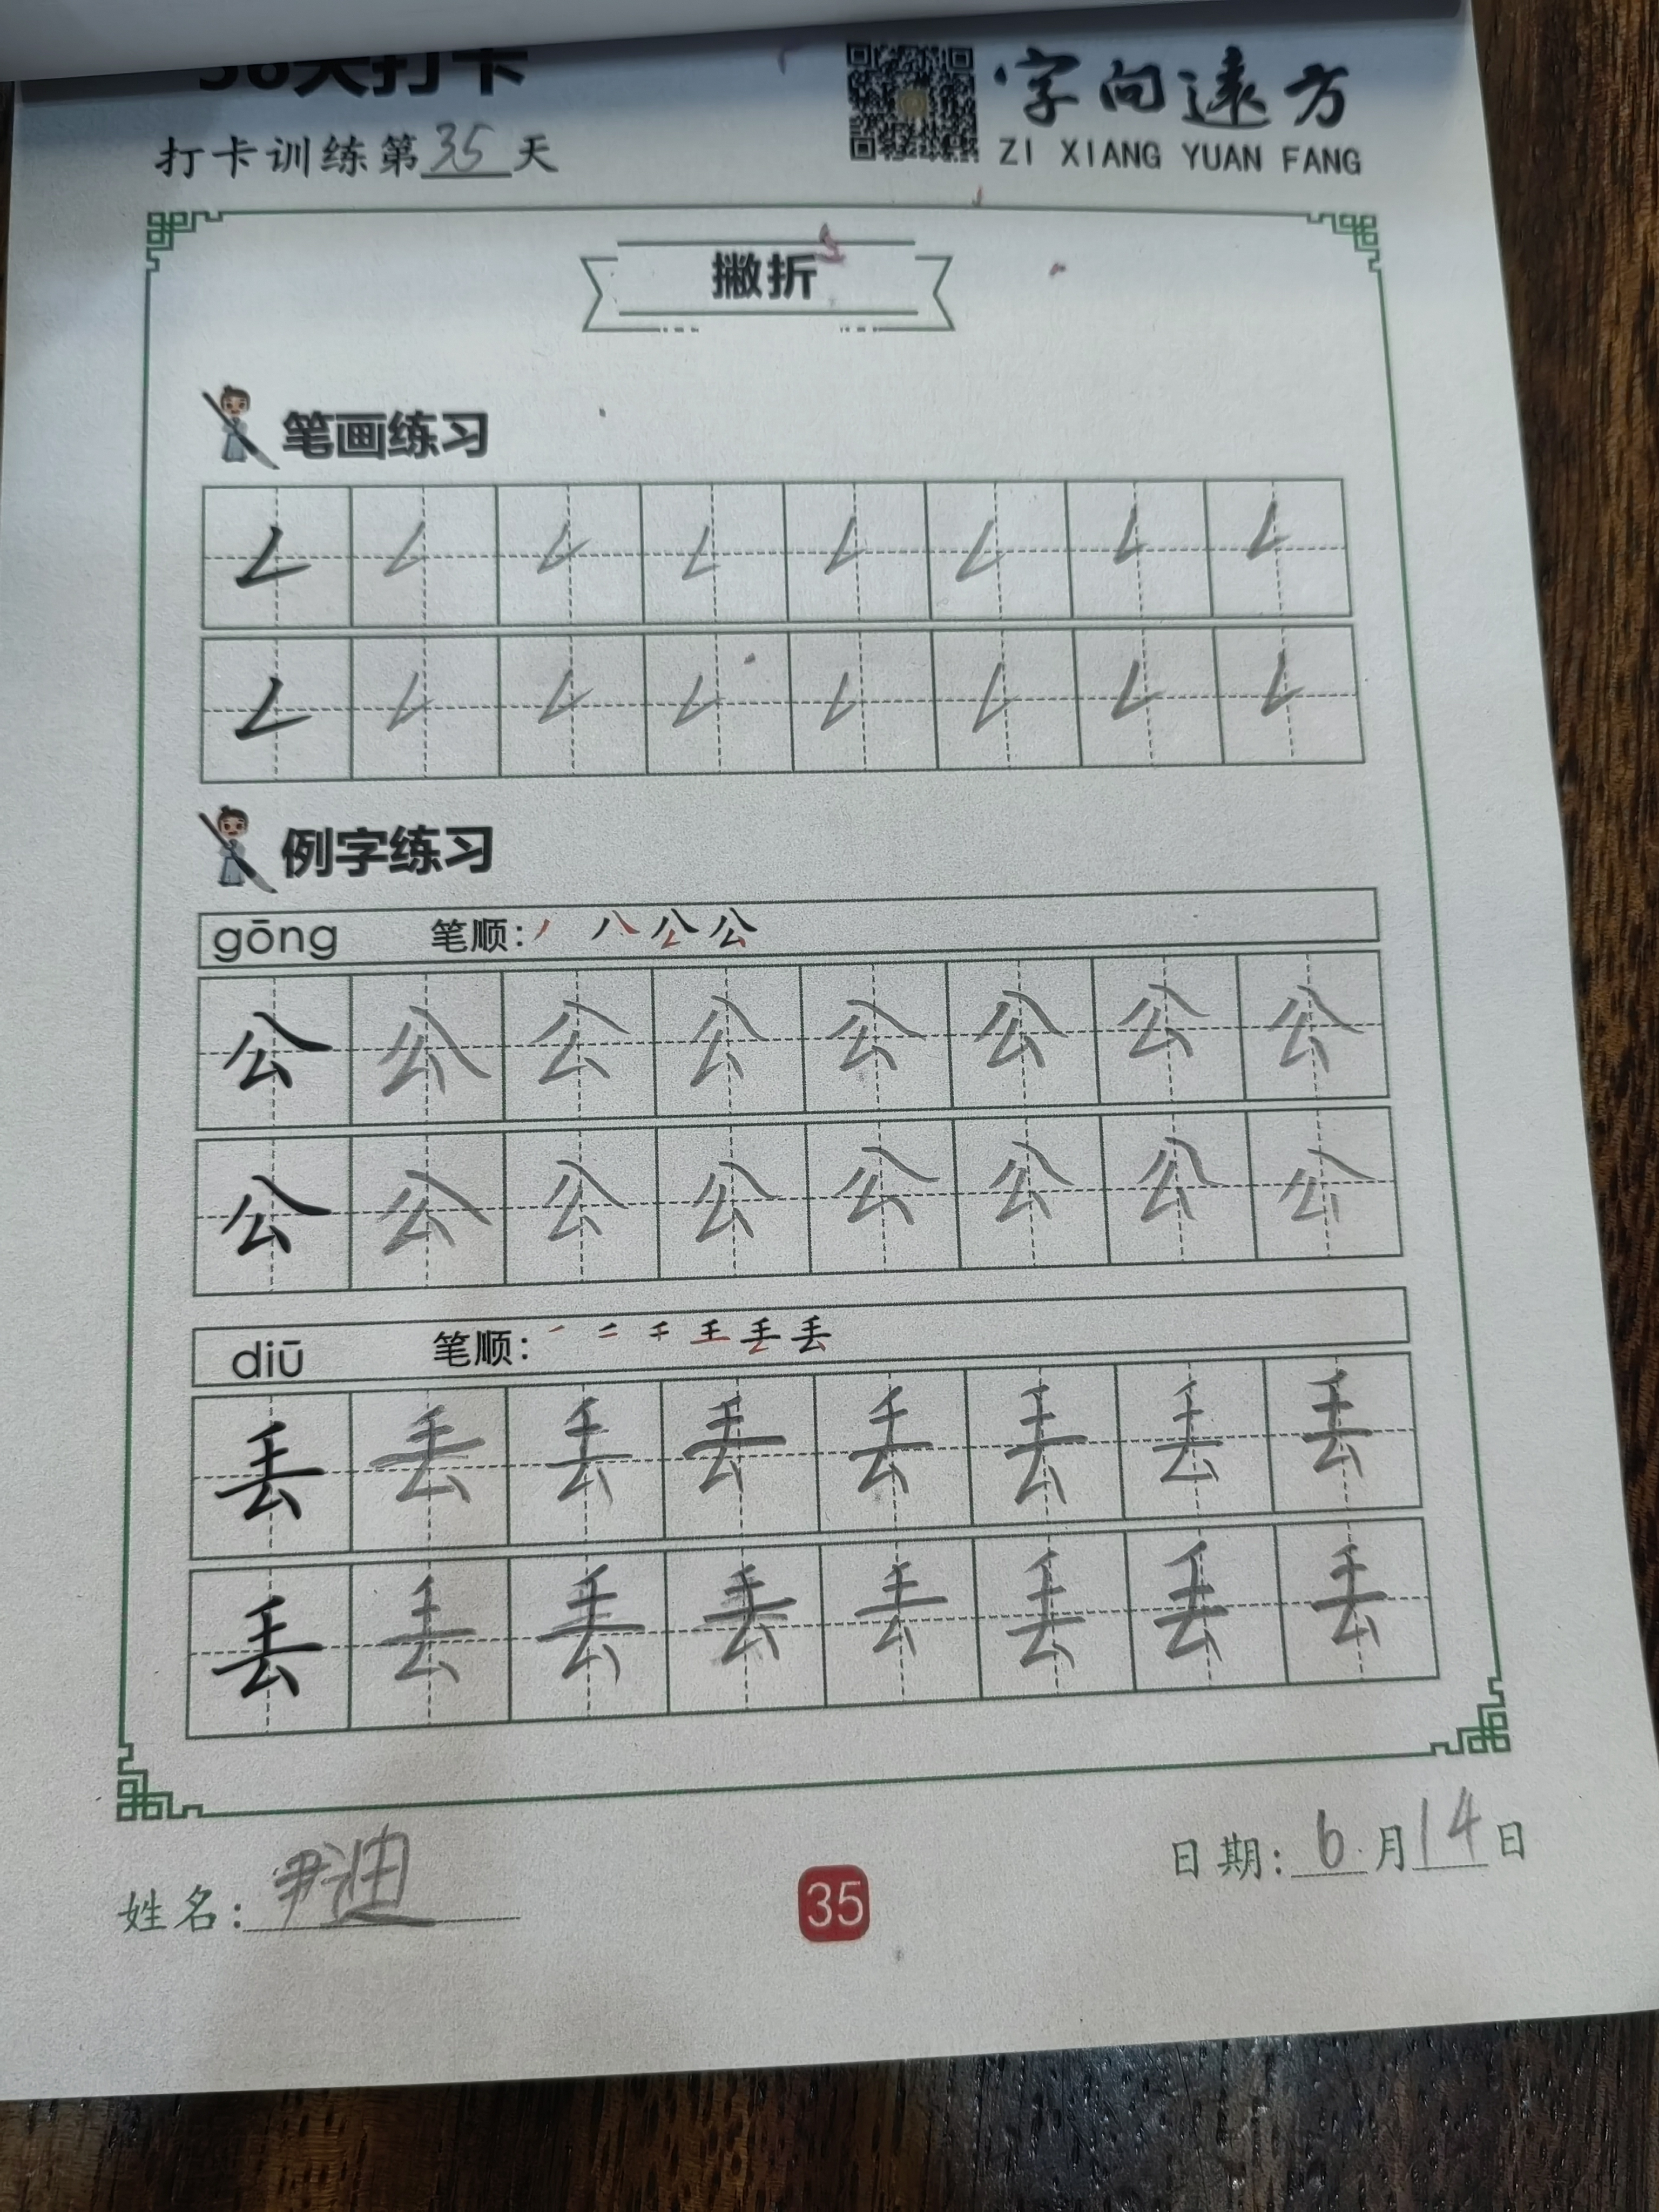 打卡训练第35天
字向远方
ZI XIANG YUAN FANG
撇折
笔画练习
例字练习
gōng 笔顺:丿 八 公 公
公 公 公 公 公 公 公 公
公 公 公 公 公 公 公 公
diū 笔顺:
丢 丢 丢 丢 丢 丢 丢 丢
丢 丢 丢 丢 丢 丢 丢 丢
姓名:
35
日期:6月14日